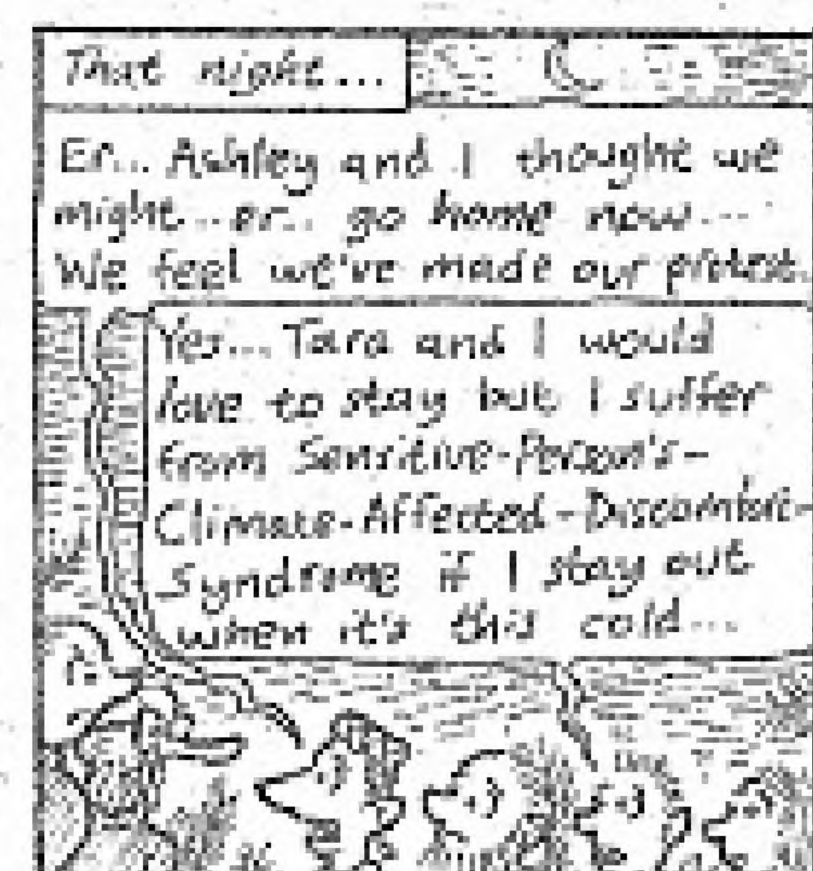 That night...
Er... Ashley and I thought we
might... er... go home now...
We feel we've made our protest.
Yes... Tara and I would
love to stay but I suffer
from Sensitive-Person's-
Climate-Affected-Discomfort-
Syndrome if I stay out
when it's this cold...